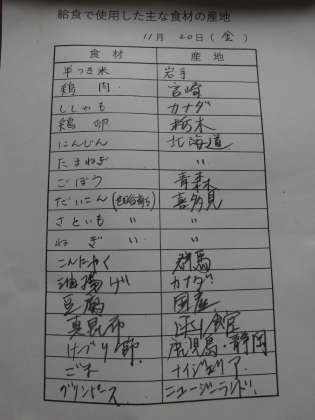 給食で使用した主な食材の産地
11月 20日(金)
食材 産地
半つき米 岩手
鶏肉 宮崎
ししゃも カナダ
鶏卵 栃木
にんじん 北海道
たまねぎ 〃
ごぼう 青森
だいこん 喜多見
さといも 〃 〃
ねぎ 〃 〃
こんにゃく 群馬
油揚げ カナダ
豆腐 国産
真昆布 函館
けずり節 鹿児島・静岡
ごま ナイジェリア
グリンピース ニュージーランド